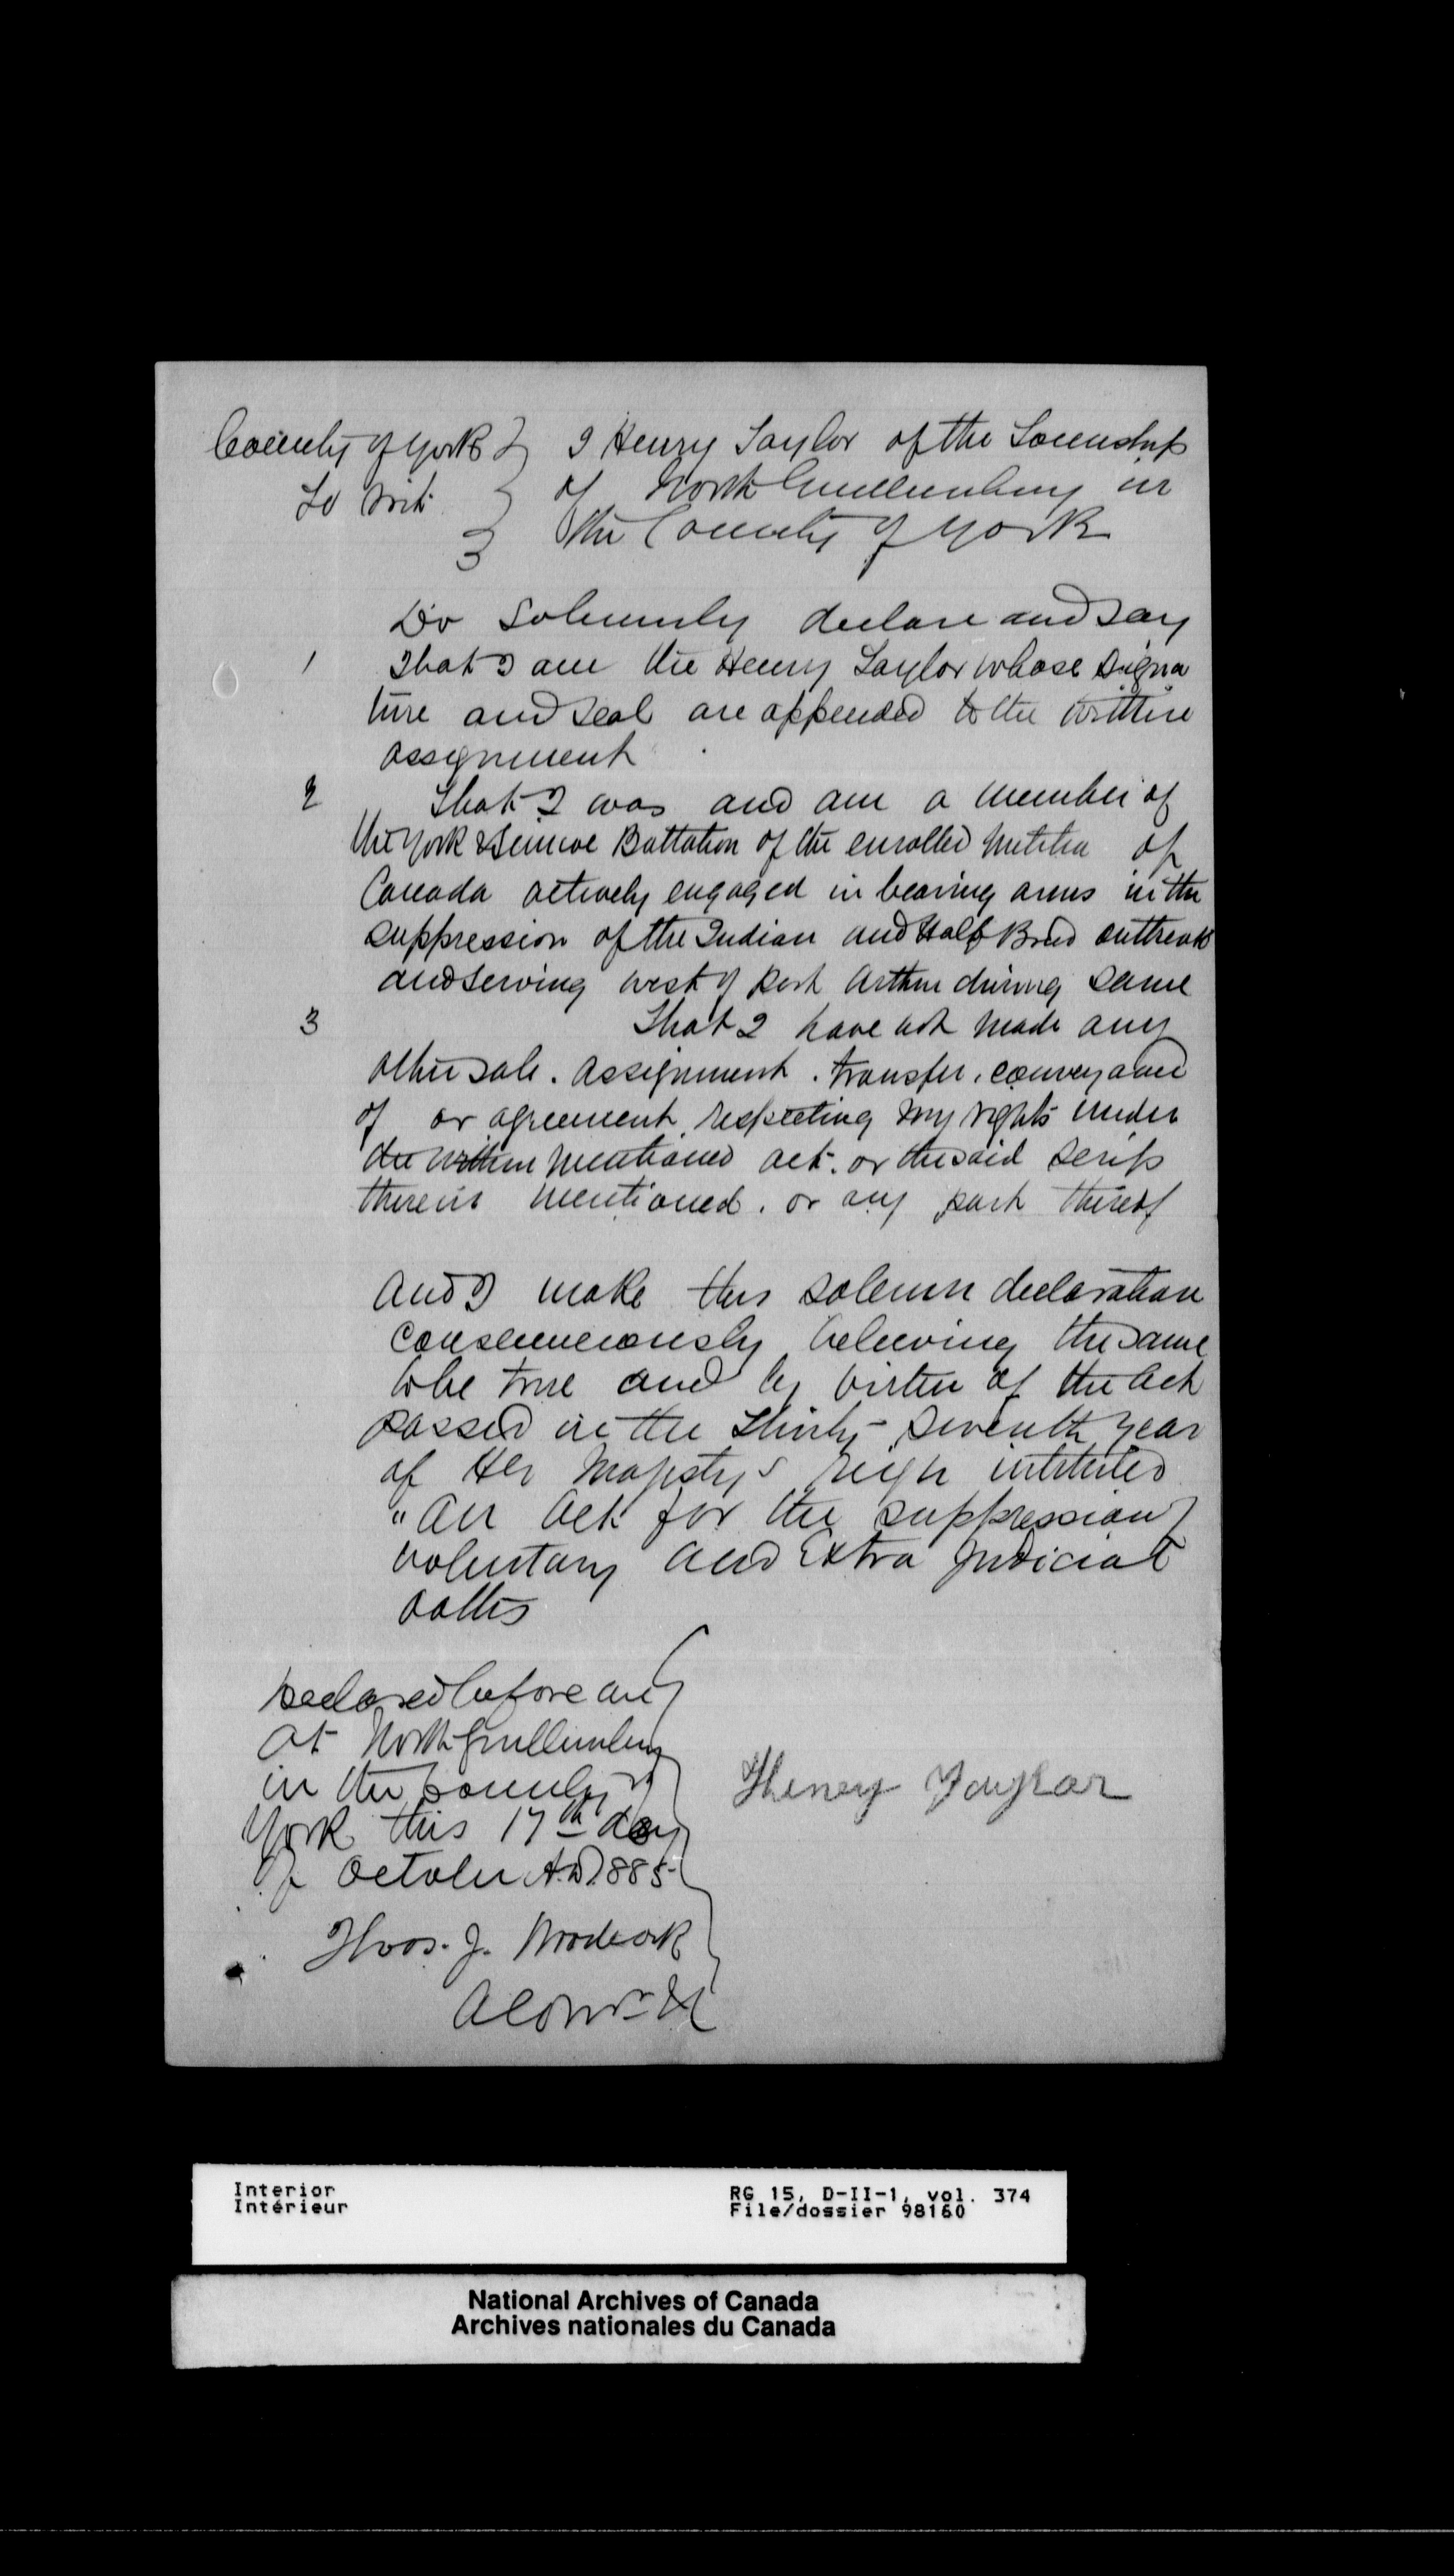 County of York } I Henry Taylor of the Township
To Wit } of North Gwillimbury in
} the County of York
Do Solemnly declare and say
1 That I am the Henry Taylor whose Signa
ture and seal are appended to the written
assignment
2 That I was and am a member of
the York & Simcoe Battalion of the enrolled Militia of
Canada actively engaged in bearing arms in the
suppression of the Indian and Half Breed outbreak
and serving west of Port Arthur during same
3 That I have not made any
other sale. assignment. transfer. conveyance
of or agreement respecting my rights under
the within mentioned act. or the said scrip
therein mentioned. or any part thereof
And I make this solemn declaration
conscienciously believing the same
to be true and by virtue of the Act
passed in the Thirty-seventh year
of Her Majesty's reign intituled
"An Act for the suppression of
voluntary and Extra Judicial
oaths
Declared before me
at North Gwillimbury
in the County of
York this 17th day
of October A.D. 1885
Henry Taylor
Thos. J. Woodcock
Interior
Intérieur
RG 15, D-II-1, vol. 374
File/dossier 98160
National Archives of Canada
Archives nationales du Canada